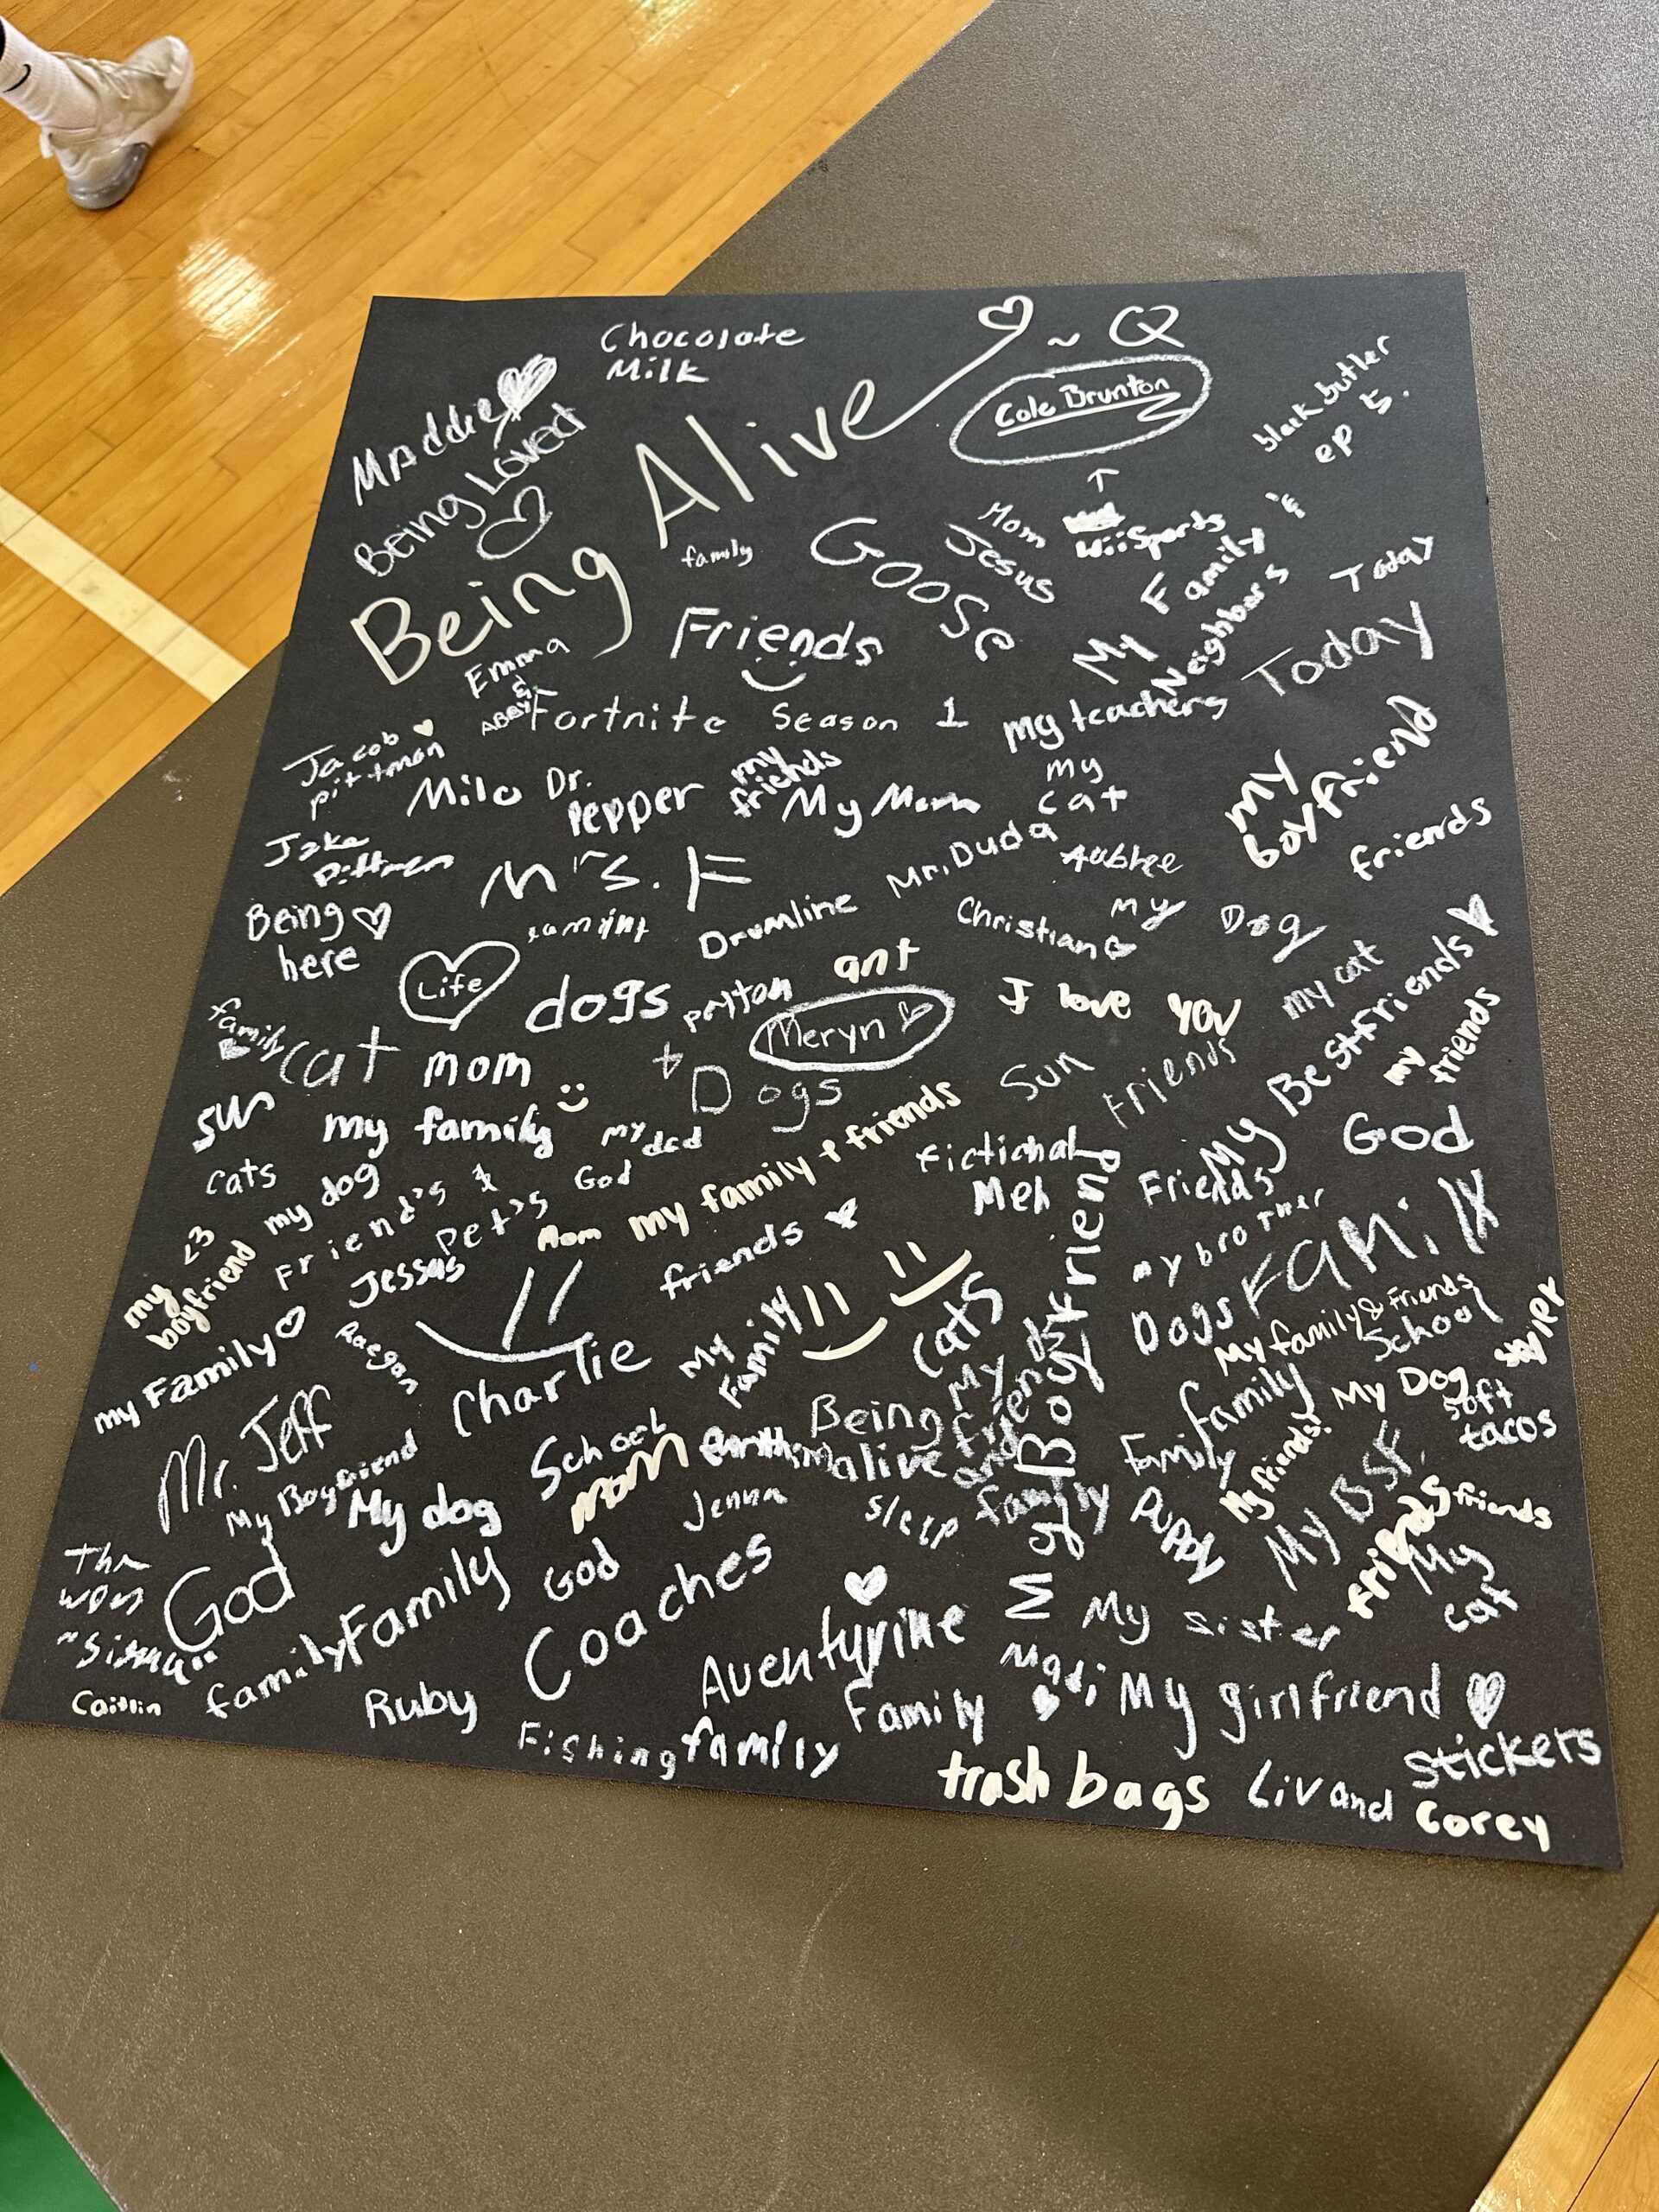 Chocolate
Milk
~ Q
Maddie
Being Loved
Being Alive
Cole Brunton
black butler
ep 5.
family
Goose
Mom
Jesus
Wii Sports
My Family &
Neighbors
Today
Today
Friends
Emma
&
ABBY
Fortnite Season 1
my teachers
Jacob
pittman
Milo
Dr.
Pepper
my
friends
My Mom
my
cat
my
boyfriend
friends
Jake
Pittman
Mrs. F
Mr. Duda
Aubree
Being
here
Drumline
Christian
my Dog
Life
dogs
peyton
ant
Meryn
I love you
my cat
My Bestfriends
my
friends
family
cat
mom
+
Dogs
Sun
Friends
God
sun
my family
my dad
my family + friends
fictional
Men
Friends
cats
my dog
Friend's &
Pet's
God
Mom
friends
my brother
FAMILY
<3
my
boyfriend
Jessas
my Family
Raegan
Charlie
My
Family
cats
Dogs
My family & friends
School
skyler
Mr. Jeff
My Boyfriend
My dog
School
mom
Being
alive
My
friends
and
family
My Boyfriend
family
Family
My friends!
My Dog
soft
tacos
Jenna
sleep
PUPPY
My BSF.
friends
friends
My
cat
God
family
Family
God
Coaches
Aventurine
My sister
Madi
My girlfriend
Caitlin
Ruby
Fishing
family
Family
trash bags
Liv and
stickers
Corey